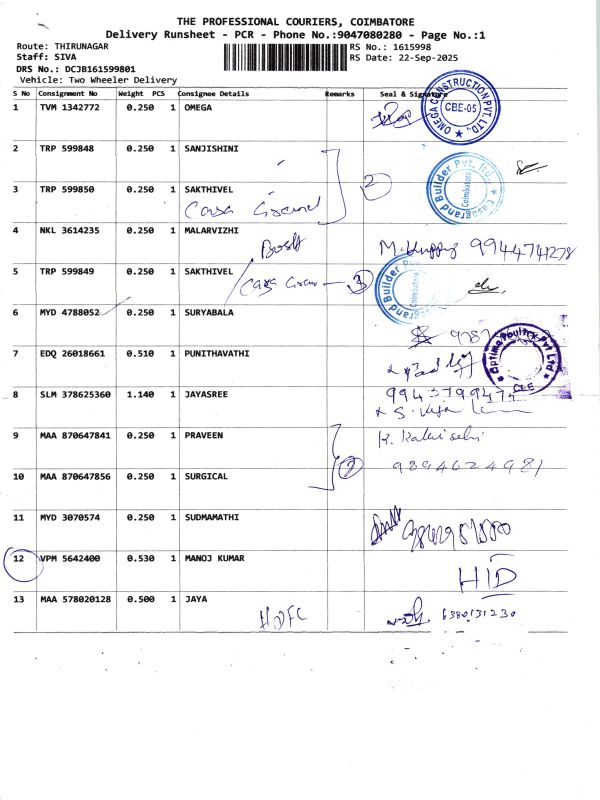 THE PROFESSIONAL COURIERS, COIMBATORE
Delivery Runsheet - PCR - Phone No.:9047080280 - Page No.:1
Route: THIRUNAGAR
RS No.: 1615998
Staff: SIVA
RS Date: 22-Sep-2025
DRS No.: DCJB161599801
Vehicle: Two Wheeler Delivery
S No Consignment No Weight PCS Consignee Details Remarks Seal & Signature
1 TVM 1342772 0.250 1 OMEGA
OMEGA CONSTRUCTION PVT. LTD.,
CBE-05
2 TRP 599848 0.250 1 SANJISHINI
2
Casagrand Builder Pvt. Ltd
Coimbatore
3 TRP 599850 0.250 1 SAKTHIVEL
Casa Grand
4 NKL 3614235 0.250 1 MALARVIZHI
9944741278
5 TRP 599849 0.250 1 SAKTHIVEL
Casa Gran 3
Casagrand Builder Pvt
Coimbatore
6 MYD 4788052 0.250 1 SURYABALA
Optima Poultry Pvt Ltd
CBE
7 EDQ 26018661 0.510 1 PUNITHAVATHI
8 SLM 378625360 1.140 1 JAYASREE
9943799474
9 MAA 870647841 0.250 1 PRAVEEN
K. Kalaiselvi
9894624981
10 MAA 870647856 0.250 1 SURGICAL
11 MYD 3070574 0.250 1 SUDMAMATHI
12 VPM 5642400 0.530 1 MANOJ KUMAR
HID
13 MAA 578020128 0.500 1 JAYA
HDFC
6380131230